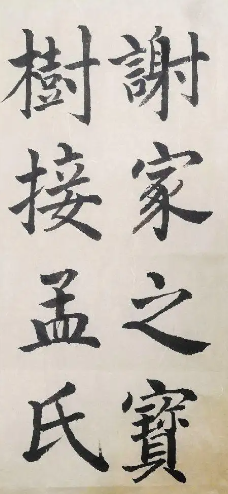 謝家之寶
樹接孟氏